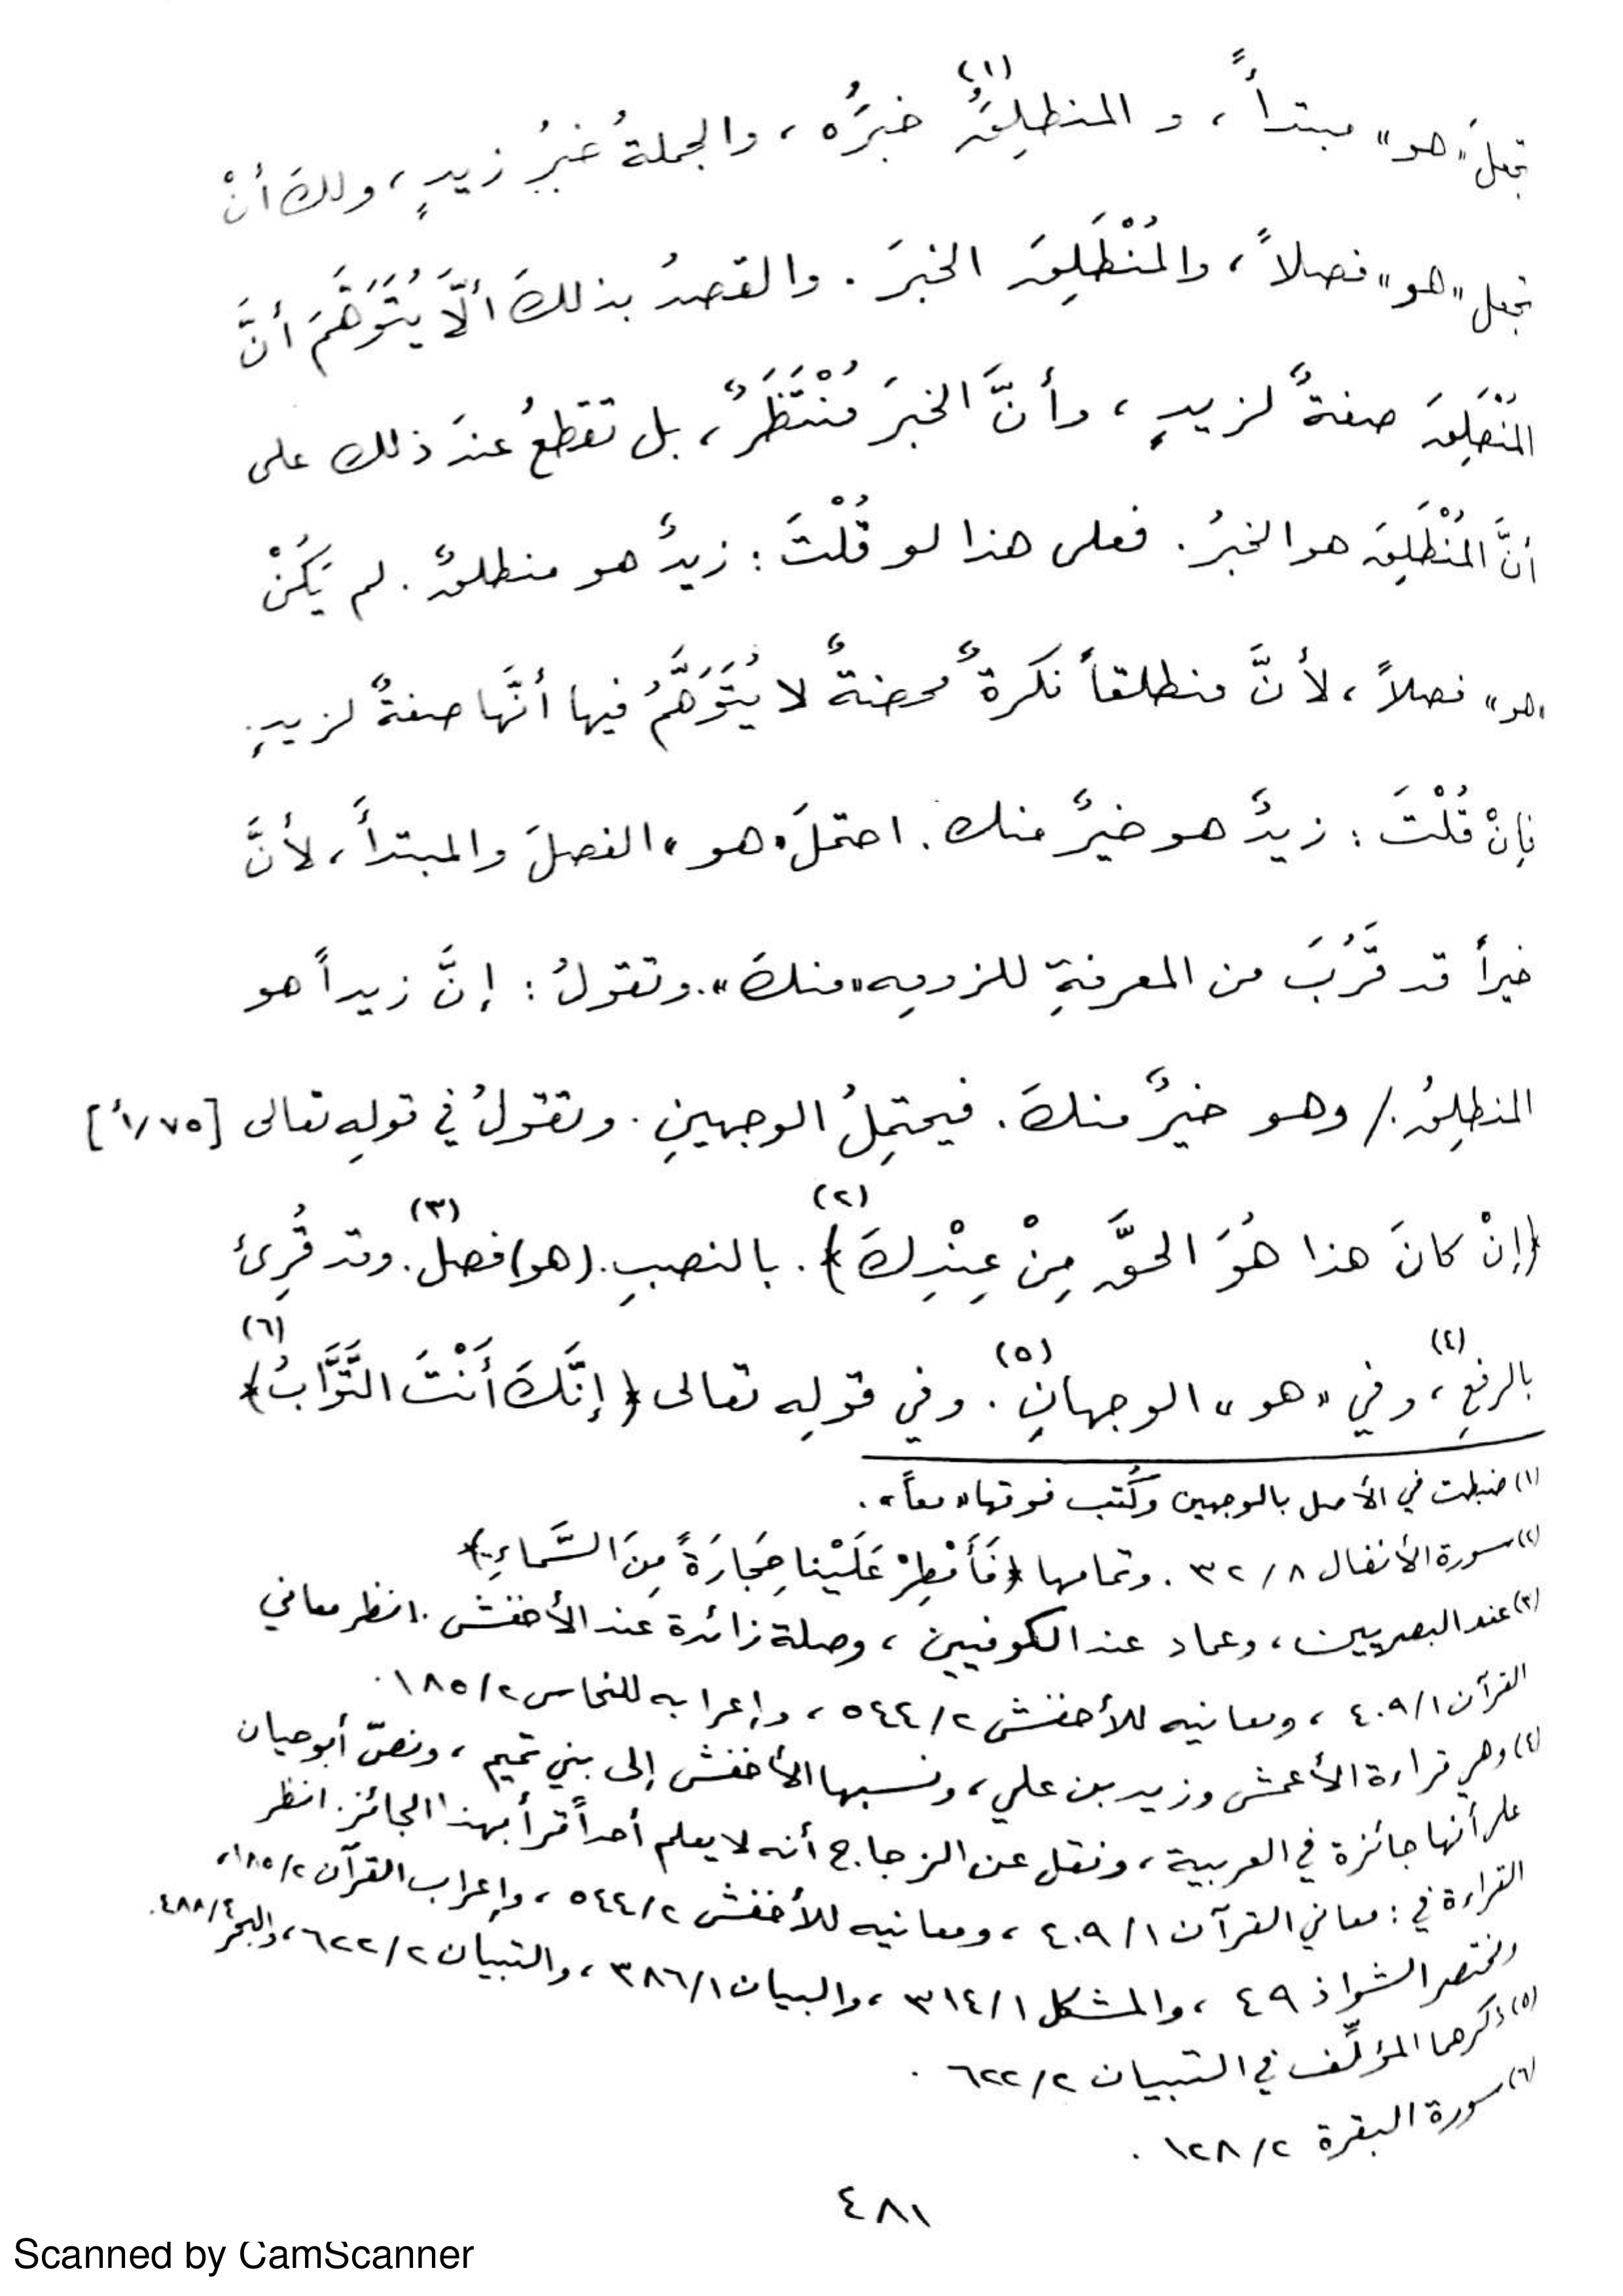 تجعلَ «هو» مبتدأً ، و المنطلِقَُ (١) خبرَُه ، والجملةُ خبرُ زيدٍ ، ولكَ أنْ
تجعل «هو» فصلاً ، والمُنْطَلِقَ الخبرَ . والقصدُ بذلكَ ألَّا يُتَوَهَّمَ أنَّ
المُنْطَلِقَ صفةٌ لزيدٍ ، وأنَّ الخبرَ مُنْتَظَرٌ ، بل تقطعُ عندَ ذلك على
أنَّ المُنْطَلِقَ هو الخبرُ . فعلى هذا لو قُلْتَ : زيدٌ هو منطلقٌ . لم يَكُنْ
«هو» فصلاً ، لأنَّ منطلقاً نكرةٌ محضةٌ لا يُتَوَهَّمُ فيها أنَّها صفةٌ لزيدٍ .
فإنْ قُلْتَ : زيدٌ هو خيرٌ منك . احتملَ «هو» الفصلَ والمبتدأَ ، لأنَّ
خيراً قد قَرُبَ من المعرفةِ للزومِه «منكَ» . وتقولُ : إنَّ زيداً هو
المنطلِقُ . / وهو خيرٌ منكَ . فيحتمِلُ الوجهينِ . وتقولُ في قولِه تعالى [٧٥/أ]
﴿إنْ كانَ هذا هُوَ الحقَّ مِنْ عِنْدِكَ﴾ (٢) . بالنصبِ . (هو) فصل (٣) . وقد قُرِئ
بالرفعِ (٤) ، وفي «هو» الوجهانِ (٥) . وفي قولِه تعالى ﴿إنَّكَ أَنْتَ التَّوَّابُ﴾ (٦)
(١) ضبطت في الأصل بالوجهين وكُتب فوقها «معاً» .
(٢) سورة الأنفال ٨/٣٢ . وتمامها ﴿فَأَمْطِرْ عَلَيْنا حِجَارَةً مِنَ السَّماءِ﴾
(٣) عند البصريين ، وعماد عند الكوفيين ، وصلة زائدة عند الأخفش . انظر معاني
القرآن ٤٠٩/١ ، ومعانيه للأخفش ٥٤٤/٢ ، وإعرابه للنحاس ١٨٥/٢ .
(٤) وهي قراءة الأعمش وزيد بن علي ، ونسبها الأخفش إلى بني تميم ، ونصّ أبو حيان
على أنها جائزة في العربية ، ونقل عن الزجاج أنه لا يعلم أحداً قرأ بهذا الجائز . انظر
القراءة في : معاني القرآن ٤٠٩/١ ، ومعانيه للأخفش ٥٤٤/٢ ، وإعراب القرآن ١٨٥/٢ ،
ومختصر الشواذ ٤٩ ، والمشكل ٣١٤/١ ، والبيان ٣٨٦/١ ، والتبيان ٦٢٢/٢ ، والبحر ٤٨٨/٤ .
(٥) ذكرهما المؤلِّف في التبيان ٦٢٢/٢ .
(٦) سورة البقرة ١٢٨/٢ .
٤٨١
Scanned by CamScanner